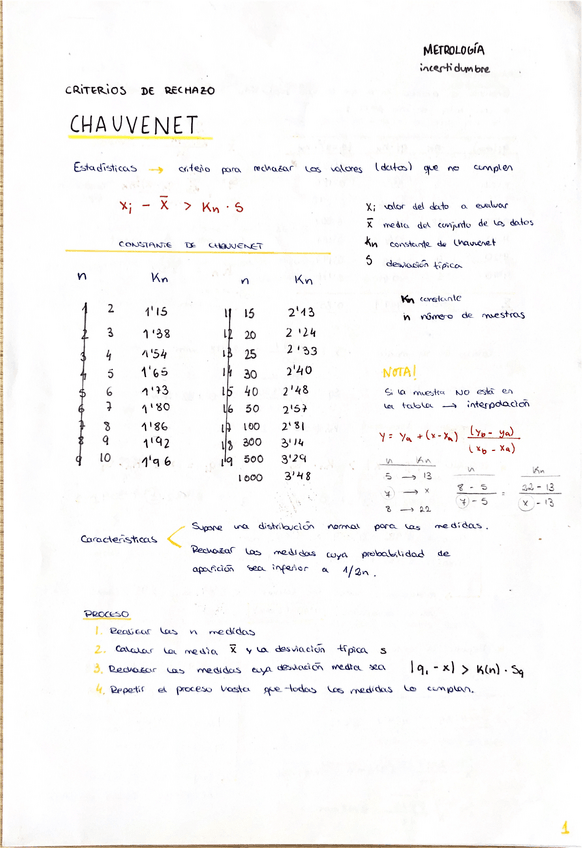 METROLOGÍA
incertidumbre
CRITERIOS DE RECHAZO
CHAUVENET
Estadísticas → criterio para rechazar los valores (datos) que no cumplen
xi - x̄ > Kn · S
xi valor del dato a evaluar
x̄ media del conjunto de los datos
Kn constante de Chauvenet
S desviación típica
Kn constante
n número de muestras
CONSTANTE DE CHAUVENET
n Kn n Kn
2 1'15 15 2'13
3 1'38 20 2'24
4 1'54 25 2'33
5 1'65 30 2'40
6 1'73 40 2'48
7 1'80 50 2'57
8 1'86 100 2'81
9 1'92 300 3'14
10 1'96 500 3'29
1000 3'48
NOTA!
Si la muestra NO está en
la tabla → interpolación
y = ya + (x-xa) (yb - ya) / (xb - xa)
n Kn
5 → 13
7 → x
8 → 22
n Kn
8 - 5 / 7 - 5 = 22 - 13 / x - 13
Características
Supone una distribución normal para las medidas.
Rechazar las medidas cuya probabilidad de
aparición sea inferior a 1/2n.
PROCESO
1. Realizar las n medidas
2. Calcular la media x̄ y la desviación típica s
3. Rechazar las medidas cuya desviación media sea |qi - x| > K(n) · Sq
4. Repetir el proceso hasta que todas las medidas lo cumplan.
1